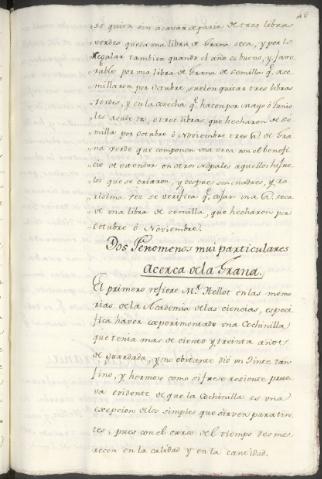 se quita sin acavar de paria de tres libras
verdes queda una libra de Grana seca, y por lo
regular tambien quando el año es bueno, y favo
rable por una libra de Grana de semilla q.e se
millaron por Octubre, suelen quitar tres libras
verdes, y en la cosecha q.e hacen por Mayo ó Junio
les acude tres, otras libras que hecharon de se
milla por Octubre ó Noviembre tres de Gra
na verde que componen una seca con el benefi
cio de en otros Nopales aquellos
los que se criaron, y despues son madres, y ra
risima vez se verifica q.e cojer una seca
de una libra de semilla, que hecharon por
Octubre ó Noviembre.
Dos Fenomenos mui particulares
acerca de la Grana.
El primero refiere M.r Hellot en las memo
rias de la Academia de las ciencias, especi
fica haver experimentado una Cochinilla
que tenia mas de ciento y treinta años
de guardada, y no obstante dió un Tinte tan
fino, y hermoso como si fuese reciente prue
va evidente de que la Cochinilla es una
excepcion de los simples que sirven para tin
tes, pues con el curso del tiempo desme
recen en la calidad y en la cantidad.